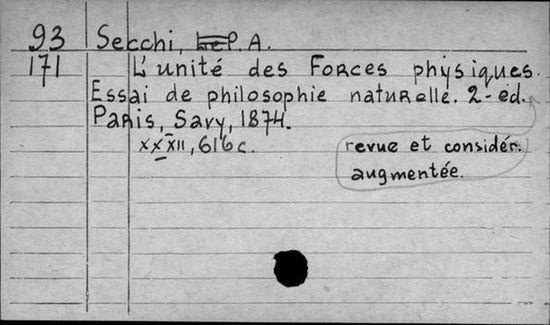 93 Secchi, Le P. A.
171 L'unité des Forces physiques.
Essai de philosophie naturelle. 2- ed.
Paris, Savy, 1874.
XXXII, 616 c.
revue et considér.
augmentée.